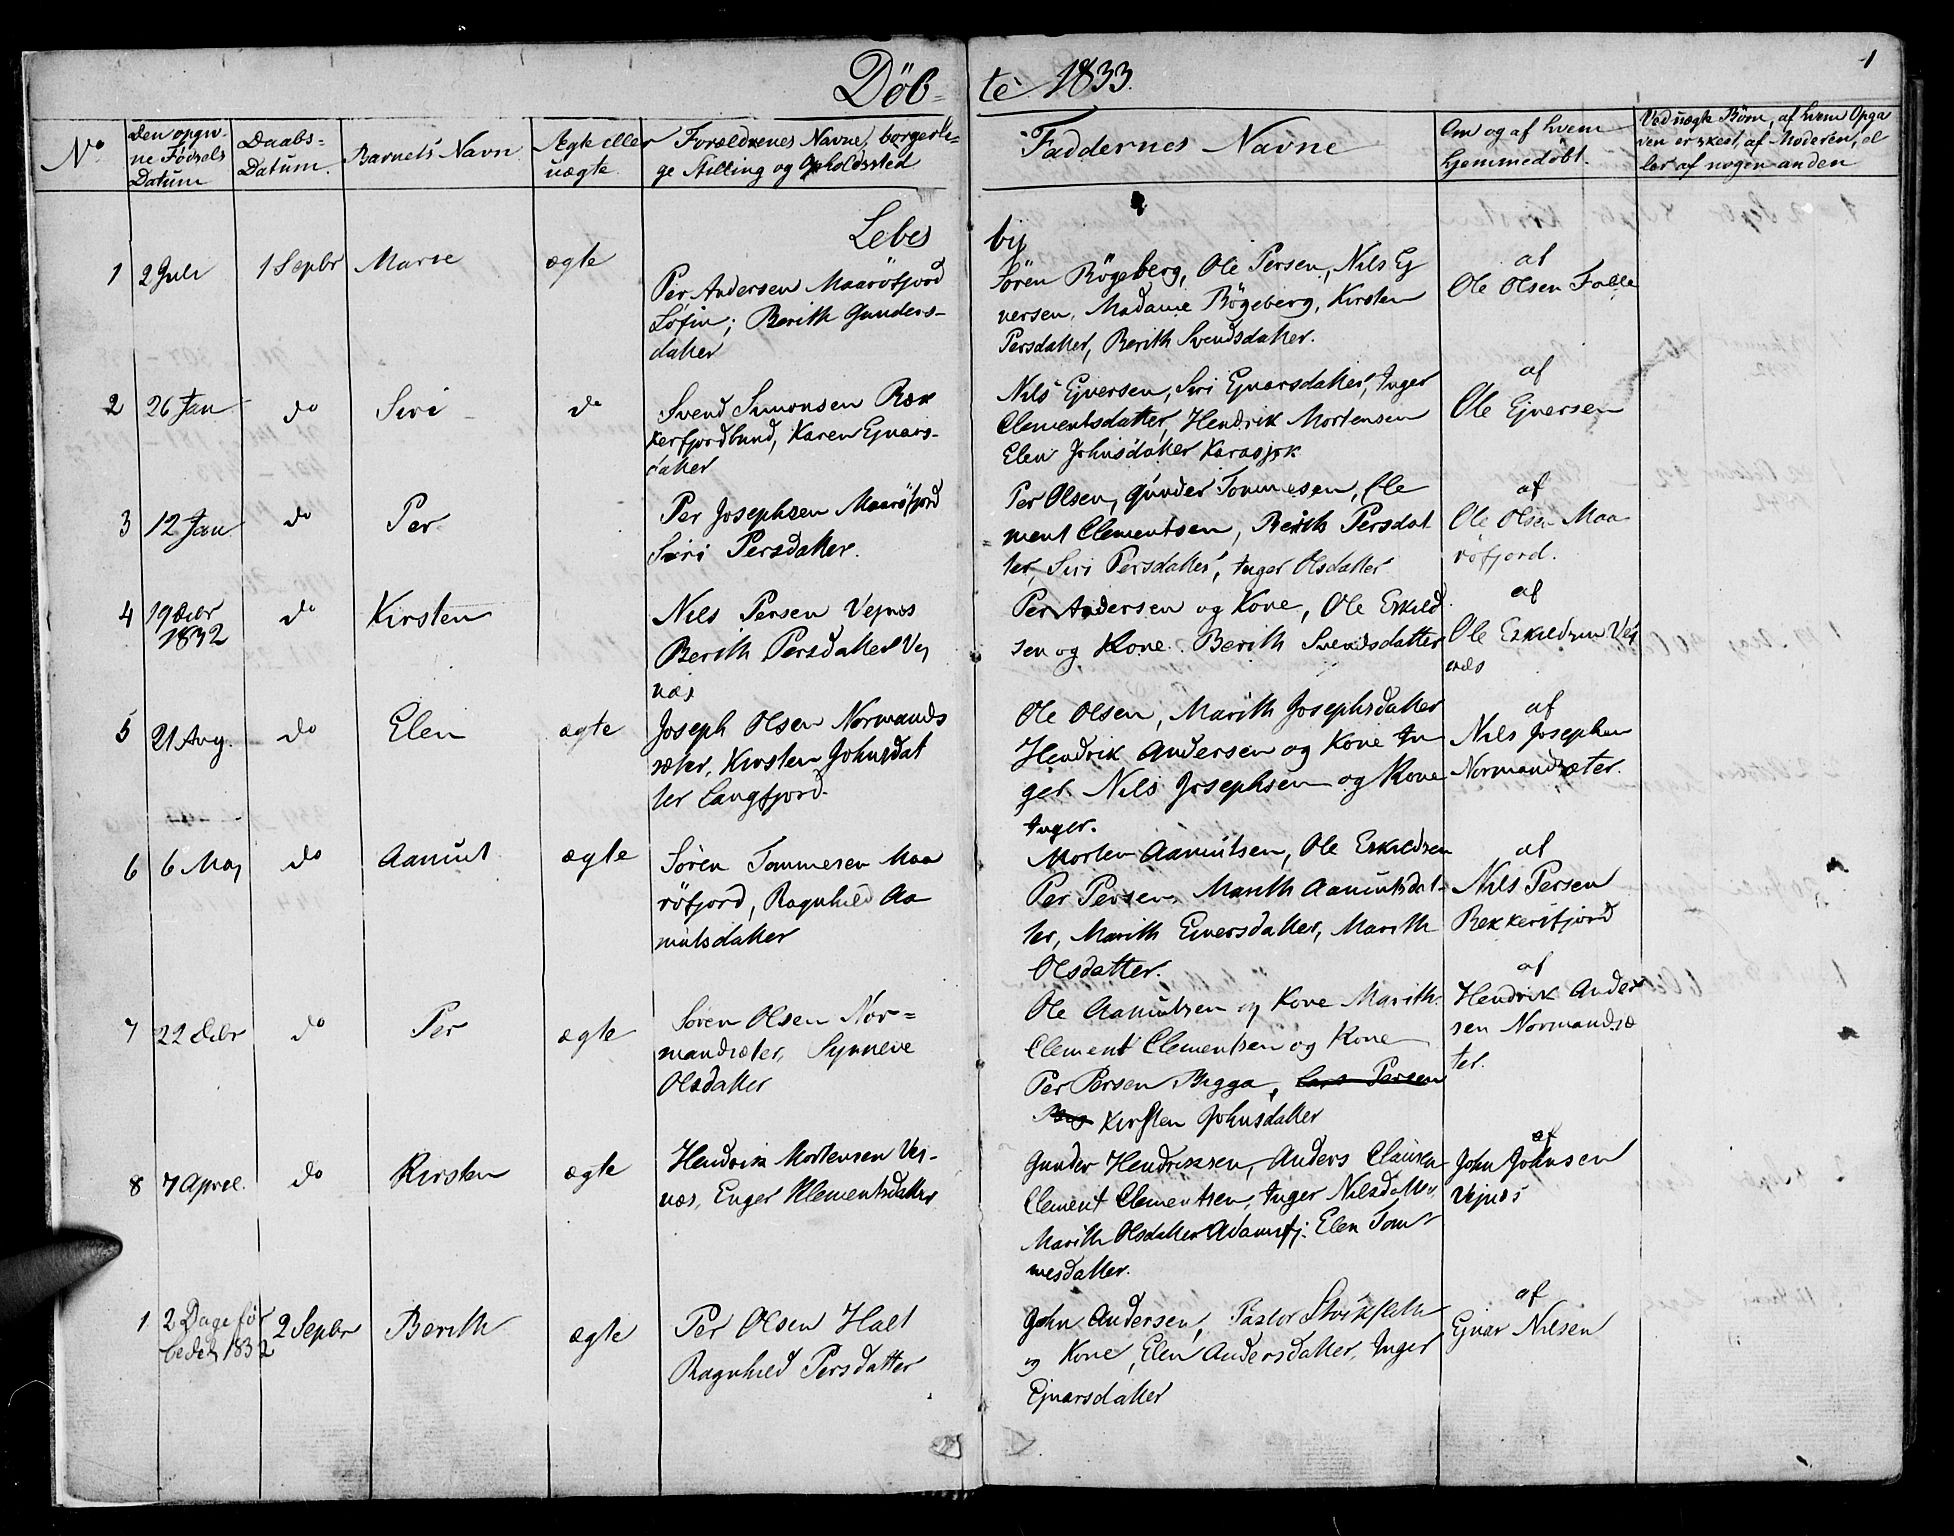 Döb-te 1833.
1
No
Den opgiv-
ne Fødsels
Datum
Daabs-
Datum.
Barnets Navn
Ægte eller
uægte.
Forældrenes Navne, borgerli-
ge Stilling og Opholdssted
Faddernes Navne
Om og af hvem
hjemmedöbt.
Ved uægte Börn, af hvem Opga
ven er skeet, af Moderen, el
ler af nogen anden
Lebesby
1 2 Juli 1 Sepbr Marie ægte
Per Andersen Maaröfjord
Söfin; Berith Gunders-
datter
Sören Rögeberg, Ole Persen, Nils Ej
versen, Madame Rögeberg, Kirsten
Persdatter, Berith Svendsdatter.
af
Ole Olsen
2 26 Jan do Siri do
Svend Simonsen Bek
kerfjordbund, Karen Ejnars-
datter
Nils Ejversen, Siri Ejnarsdatter, Inger
Clementsdatter, Hendrik Mortensen
Elen Johnsdatter Karasjok
af
Ole Ejversen
3 12 Jan do Per
Per Josephsen Maaröfjord
Siri Persdatter.
Per Olsen, Gunder Tommesen, Cle
ment Clementsen, Berith Persdat
ter, Siri Persdatter, Inger Olsdatter
af
Ole Olsen Maa
röfjord.
4 19 Debr
1832 do Kirsten
Nils Persen Vejnes
Berith Persdatter Vej
næs
Per Andersen og Kone, Ole Eskild
sen og Kone. Berith Svendsdatter
af
Ole Eskildsen Vej
næs
5 21 Aug. do Elen ægte
Joseph Olsen Normands
sæter, Kirsten Johnsdat
ter Langfjord.
Ole Olsen, Marith Josephsdatter
Hendrik Andersen og Kone In
ger. Nils Josephsen og Kone
Inger.
af
Nils Josephsen
Normandsæter.
6 6 Maj do Aamut ægte
Sören Tommesen Maa
röfjord, Ragnhild Aa
mutsdatter
Morten Aamutsen, Ole Eskildsen
Per Persen, Marith Aamutsdat-
ter, Marith Ejversdatter, Marith
Olsdatter.
af
Nils Persen
Bekkerifjord
7 22 Debr do Per ægte
Sören Olsen Nor=
mandsæter, Synneve
Olsdatter
Ole Aamutsen og Kone Marith.
Clement Clementsen og Kone
Per Persen Bigga, Lars Persen
Kirsten Johnsdatter
af
Hendrik Ander
sen Normandsæ
ter.
8 7 April. do Kirsten ægte
Hendrik Mortensen Vej-
næs, Enger Klementsdatter
Gunder Hendriksen, Anders Clausen
Clement Clementsen, Inger Nilsdatter,
Marith Olsdatter Adamsfj. Elen Tom
mesdatter.
af
John Johnsen
Vejnæs
1 2 Dage för
1832 2 Sepbr Berith ægte
Per Olsen Hals
Ragnhild Persdatter
John Andersen, Pastor Stockfleth
og Kone, Elen Andersdatter, Inger
Ejnarsdatter
af
Ejnar Nilsen